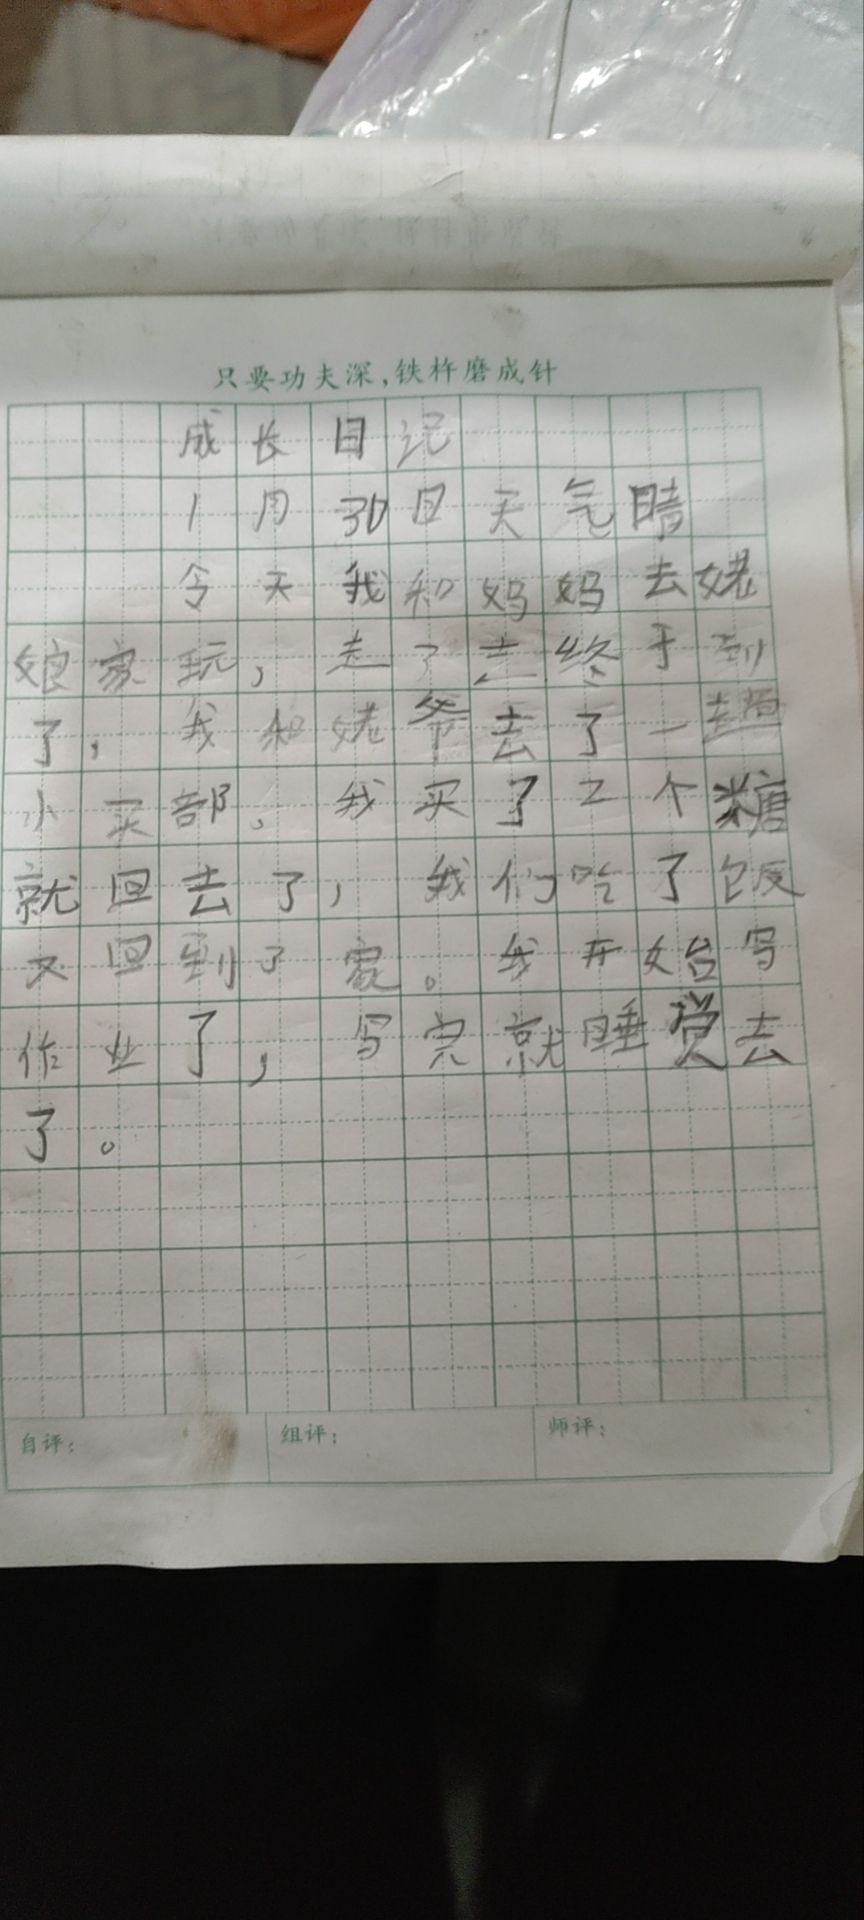 只要功夫深,铁杵磨成针
成长日记
1月30日天气晴
今天我和妈妈去姥
娘家玩，走了走终于到
了，我和姥爷去了一趟
小买部，我买了2个糖
就回去了，我们吃了饭
又回到了家。我开始写
作业了，写完就睡觉去
了。
自评： 组评： 师评：